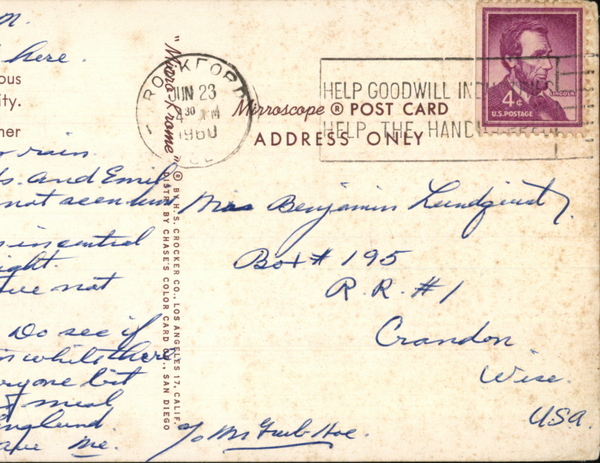 here.
ous
ity.
ner
rain.
and Emil
not seen him
in central
ight.
ive not
Do see if
in while there
ryone but
meal
England.
me.
"Mira-Krome" ® BY H. S. CROCKER CO., LOS ANGELES 17, CALIF.
DISTR. BY CHASE'S COLOR CARD CO., SAN DIEGO
ROCKFORD
JUN 23
4 30 PM
1960
ILL
HELP GOODWILL
HELP THE
4¢
U.S. POSTAGE
Mirroscope ® POST CARD
ADDRESS ONLY
Mrs Benjamin Lundquist,
Box # 195
R.R. #1
Crandon
Wisc.
USA.